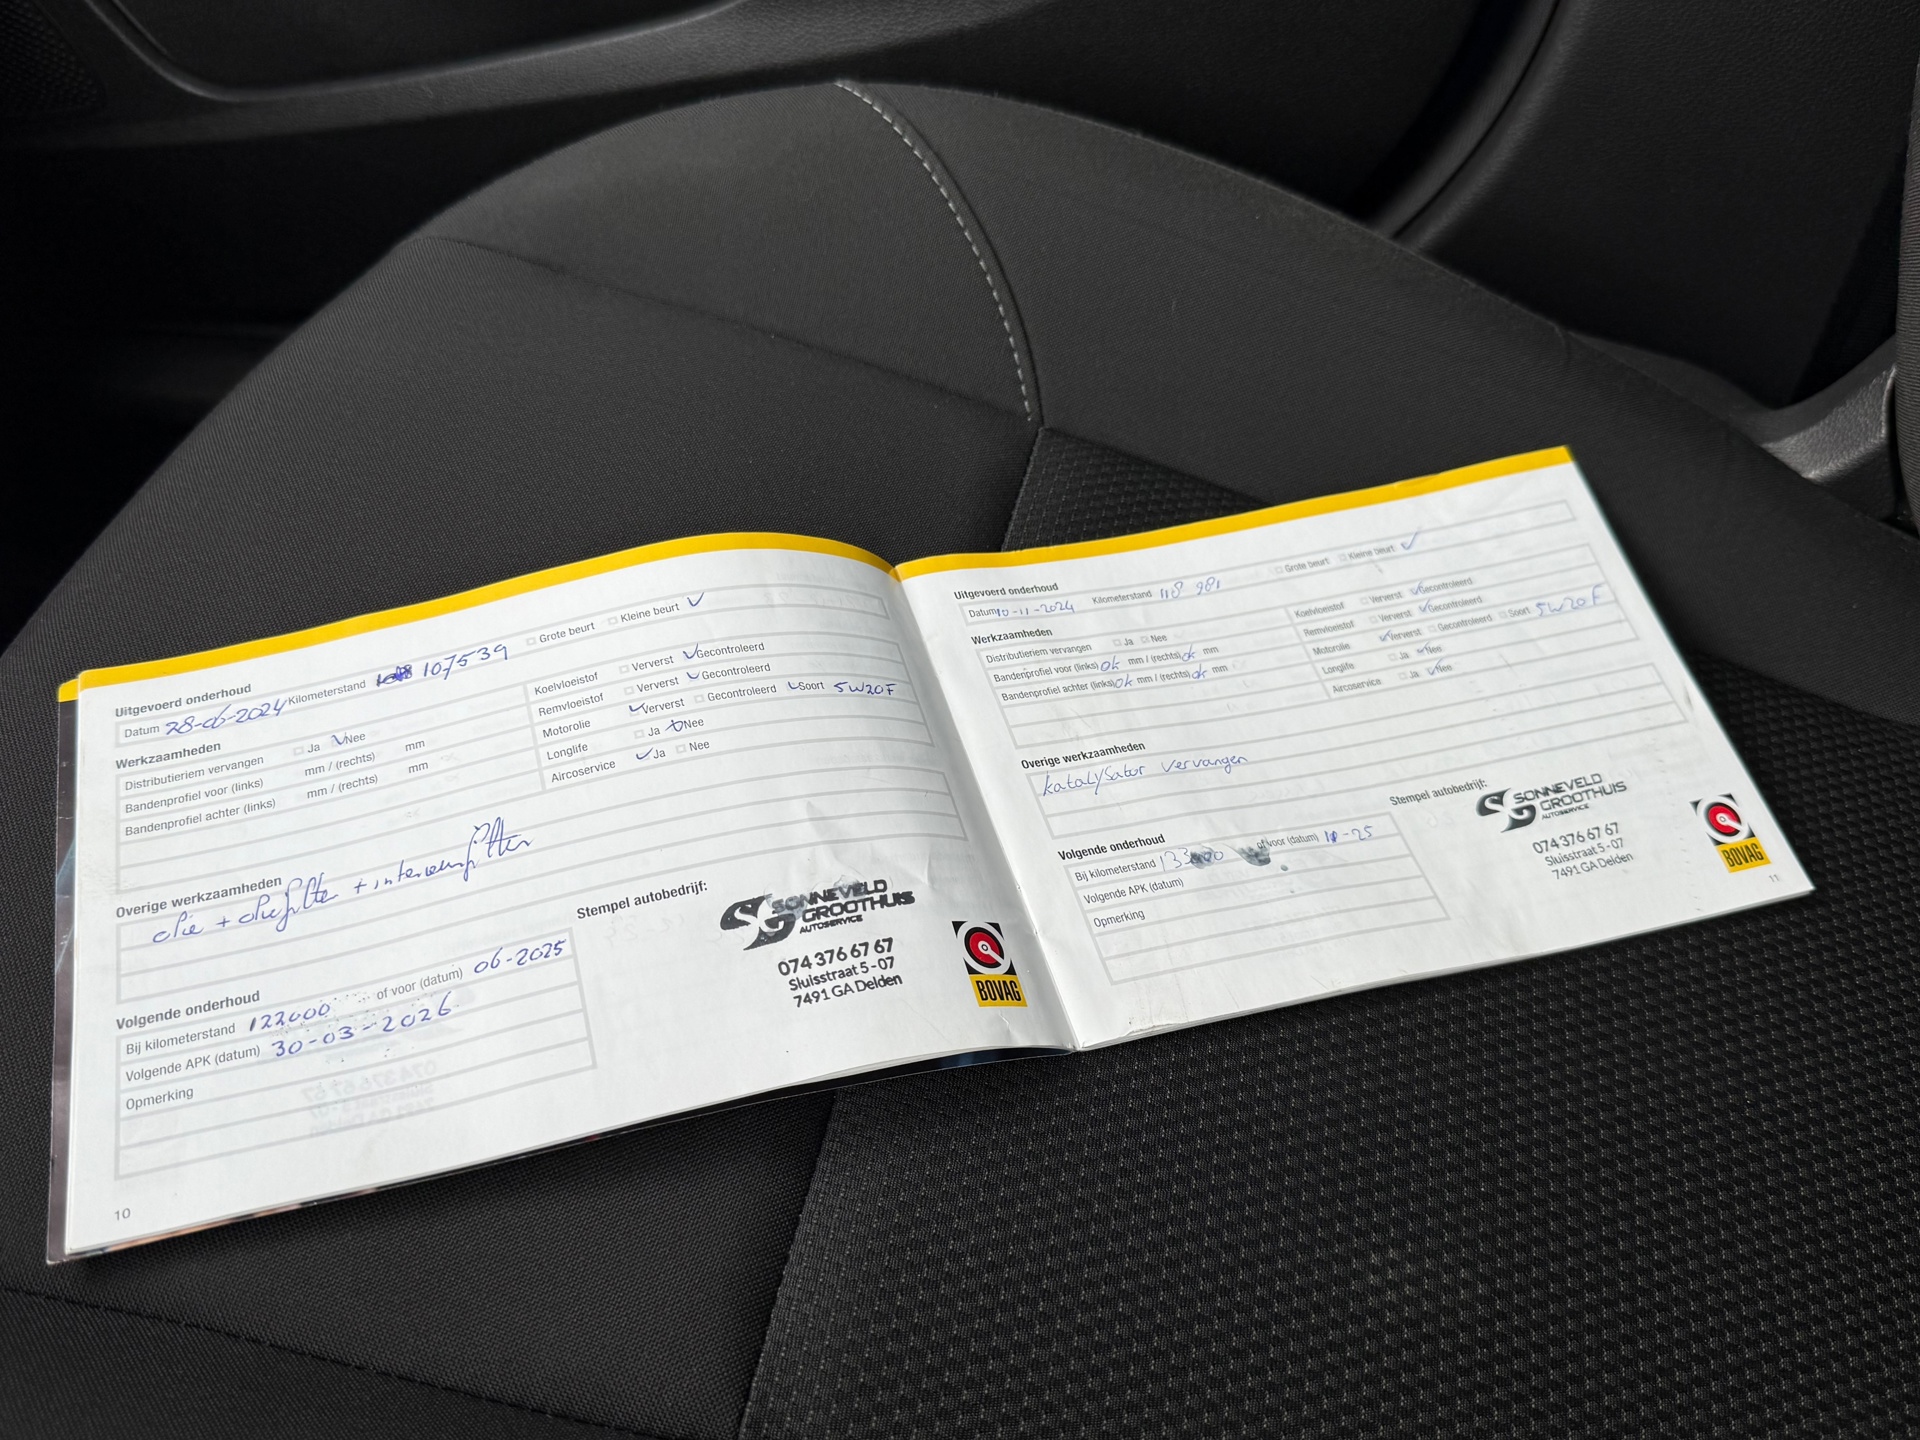 Uitgevoerd onderhoud
Datum 28-06-2024 Kilometerstand 107539 Grote beurt Kleine beurt
Werkzaamheden
Distributieriem vervangen Ja Nee
Bandenprofiel voor (links) mm / (rechts) mm
Bandenprofiel achter (links) mm / (rechts) mm
Koelvloeistof Ververst Gecontroleerd
Remvloeistof Ververst Gecontroleerd
Motorolie Ververst Gecontroleerd Soort 5W20F
Longlife Ja Nee
Aircoservice Ja Nee
Overige werkzaamheden
olie + oliefilter + interieurfilter
Volgende onderhoud
Bij kilometerstand 122000 of voor (datum) 06-2025
Volgende APK (datum) 30-03-2026
Opmerking
Stempel autobedrijf:
SG SONNEVELD
GROOTHUIS
AUTOSERVICE
074 376 67 67
Sluisstraat 5-07
7491 GA Delden
BOVAG
10
Uitgevoerd onderhoud
Datum 10-11-2024 Kilometerstand 118 981 Grote beurt Kleine beurt
Werkzaamheden
Distributieriem vervangen Ja Nee
Bandenprofiel voor (links) ok mm / (rechts) ok mm
Bandenprofiel achter (links) ok mm / (rechts) ok mm
Koelvloeistof Ververst Gecontroleerd
Remvloeistof Ververst Gecontroleerd
Motorolie Ververst Gecontroleerd Soort 5W20F
Longlife Ja Nee
Aircoservice Ja Nee
Overige werkzaamheden
katalysator vervangen
Volgende onderhoud
Bij kilometerstand of voor (datum)
Volgende APK (datum)
Opmerking
Stempel autobedrijf:
SG SONNEVELD
GROOTHUIS
AUTOSERVICE
074 376 67 67
Sluisstraat 5-07
7491 GA Delden
BOVAG
11